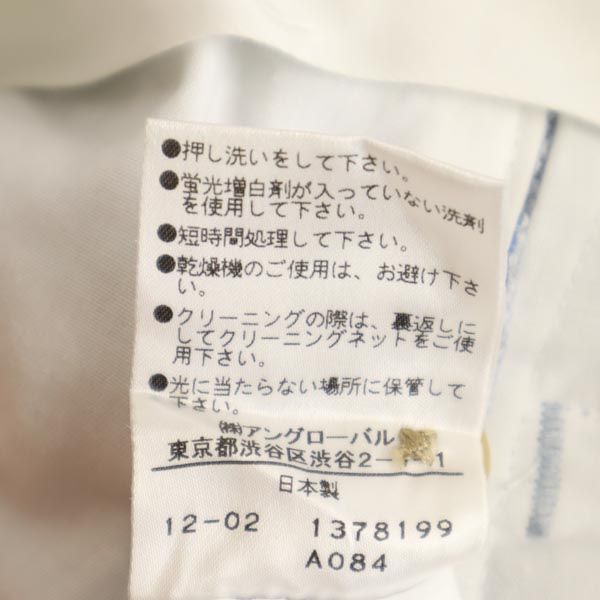 ●押し洗いをして下さい。
●蛍光増白剤が入っていない洗剤
を使用して下さい。
●短時間処理して下さい。
●乾燥機のご使用は、お避け下さ
い。
●クリーニングの際は、裏返しに
してクリーニングネットをご使
用下さい。
●光に当たらない場所に保管して
下さい。
㈱アングローバル
東京都渋谷区渋谷2- -1
日本製
12-02 1378199
A084